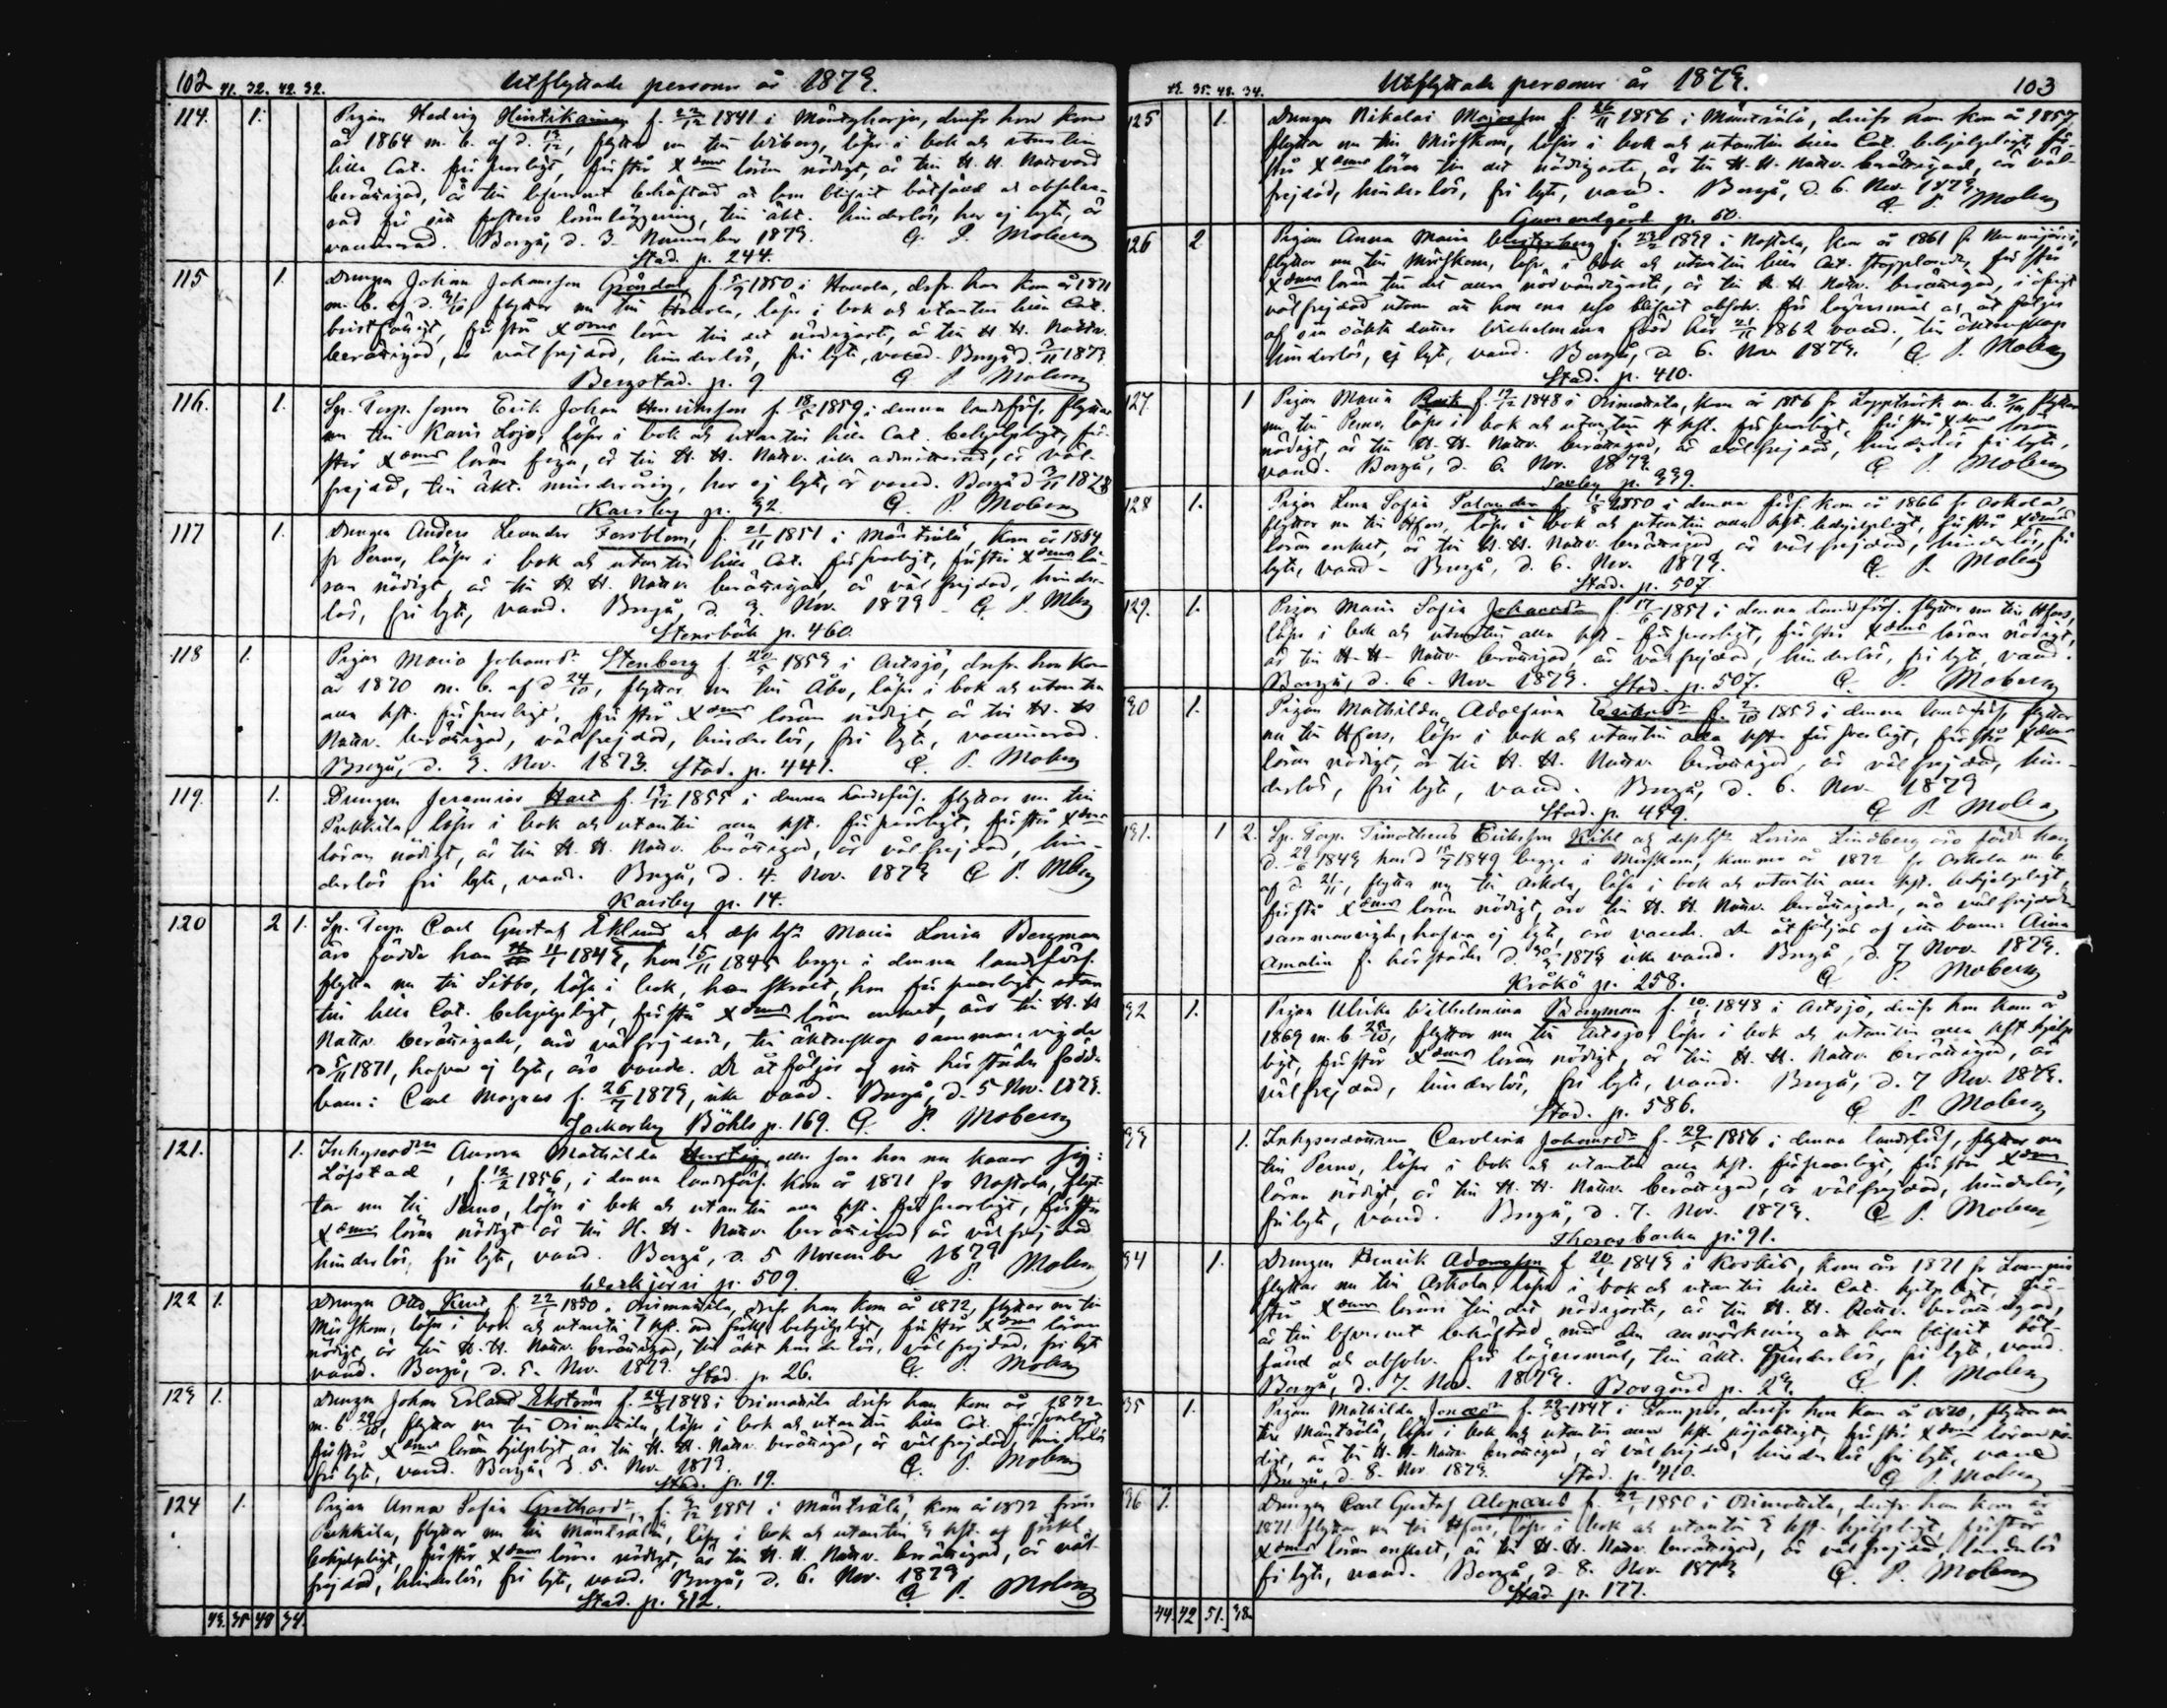 102 41. 32. 42. 32. Utflyttade personer år 1873.
114. 1. Pigan Hedvig Hintikainen f. 22/12 1841 i Mäntyharju, drifr hon kom
år 1864 m. b. af d. 12/12, flyttar nu till Wiborg, läser i bok och utantill
lilla Cat. försvarligt, förstår Xdoms läran nödigt, är till H. H. Nattvard
berättigad, är till lefvernet behäftad at hon blifvit bötfäld och absolve-
rad för sin fosters lönnläggning, till äkt. hinderlös, har ej lyte, är
vaccinerad. Borgå, d. 3. November 1873. G. P. Moberg
Stad. p. 244.
115 1. Drengen Johan Johansson Gröndal f. 5/9 1850 i Hauola, drfr. han kom år 1871
m. b. af d. 31/10 flyttar nu till, läser i bok och utantill lilla Cat.
bristfälligt, förstår Xdoms lära till det nödigaste, är till H. H. Nattv.
berättigad, är välfrejdad, hinderlös, fri lyte, vaccd. Borgå d. 3/11 1873
Bergstad. p. 9. G. P. Moberg
116. 1. Sp. Torp. sonen Erik Johan Henriksson f. 18/5 1859 i denna landsförs. flyttar
nu till Karis Lojo, läser i bok och utantill lilla Cat. behjelpligt, för-
står Xdoms läran föga, är till H. H. Nattv. icke admitterad, är väl-
frejdad, till äkt. minderårig, har ej lyte, är vaccd. Borgå d 3/11 1873
Karsby p. 92. G. P. Moberg
117 1. Drengen Anders Leander Forsblom, f. 21/11 1851 i Mäntsälä, kom år 1854
fr Perno, läser i bok och utantill lilla Cat. försvarligt, förstår Xdoms lä-
ran nödigt, är till H. H. Nattv. berättigad, är välfrejdad, hinder-
lös, fri lyte, vaccd. Borgå, d. 3. Nov. 1873 - G. P. Mbg
Stensböle p. 460.
118 1. Pigan Maria Johansdr Stenberg f. 20/5 1853 i Artsjö, drifr. hon kom
år 1870 m. b. af d 24/10, flyttar nu till Åbo, läser i bok och utantill
alla hst. försvarligt, förstår Xdoms läran nödigt, är till H. H
Nattv. berättigad, välfrejdad, hinderlös, fri lyte, vaccinerad.
Borgå, d. 3. Nov. 1873. Stad. p. 441. G. P. Moberg
119. 1. Drengen Jeremias Hard f. 19/12 1855 i denna landsförs. flyttar nu till
Pukkila, läser i bok och utantill alla hst. försvarligt, förstår Xdoms
läran nödigt, är till H. H. Nattv. berättigad, är välfrejdad, hin-
derlös fri lyte, vaccd. Borgå, d. 4. Nov. 1873 G P. Mbg
Karsby p. 14.
120 2 1. Sp. Torp. Carl Gustaf Eklund och dess hst Maria Lovisa Bergman
äro födda han 11/1 1843, hon 15/11 1845 begge i denna landsförs.
flytta nu till Sibbo, läsa i bok, han, hon försvarligt utan-
till lilla Cat. behjelpligt, förstå Xdoms läran enkelt, äro till H. H
Nattv. berättigade, äro välfrejdade, till äktenskap sammanvigde
d 5/11 1871, hafva ej lyte, äro vaccde. De åtföljas af sin härstädes födda
barn: Carl Magnus f. 26/7 1873, icke vaccd. Borgå, d. 5 Nov. 1873.
Jackarby Böhls p. 169. G. P. Moberg
121. 1. Inhysesdn Aurora Mathilda Hertzig, eller som hon nu kallar sig:
Löfstad, f. 12/2 1856, i denna landsförs. kom år 1871 fr Nastola, flyt-
tar nu till Perno, läser i bok och utantill alla hst. försvarligt, förstår
Xdoms läran nödigt är till H. H. Nattv. berättigad, är välfrejdad
hinderlös, fri lyte, vaccd. Borgå, d. 5 November 1873
Werkjärvi p. 509. G. P. Moberg
122 1. Drengen Otto Kend f. 22/1 1850 i Orimattila, drifr han kom år 1872, flyttar nu till
Mörskom, läser i bok och utantill 1 hst. med förkl. behjelpligt, förstår Xdoms läran
nödigt, är till H. H. Nattv. berättigad, till äkt hinderlös, välfrejdad, fri lyte
vaccd. Borgå, d. 5. Nov. 1873. Stad. p. 26. G. P. Moberg
123 1. Drengen Johan Erland Ekström f. 24/5 1848 i Orimattila drifr han kom år 1872
m. b. 29/10, flyttar nu till Orimattila, läser i bok och utantill lilla Cat. försvarligt
förstår Xdoms läran hjelpligt är till H. H. Nattv. berättigad, är välfrejdad, hinderlös
fri lyte, vaccd. Borgå, d. 5. Nov. 1873. G. P. Moberg
Stad. p. 19.
124 1. Pigan Anna Sofia Gotthardr, f. 9/12 1851 i Mäntsälä, kom år 1872 från
Pukkila, flyttar nu till Mäntsälä, läser i bok och utantill 3 hst. af förkl.
behjelpligt, förstår Xdoms läran nödigt, är till H. H. Nattv. berättigad, är väl-
frejdad, hinderlös, fri lyte, vaccd. Borgå, d. 6. Nov. 1873
Stad. p. 312. G. P. Moberg
43. 35 48 34.
43. 35. 48. 34. Utflyttade personer år 1873. 103
125 1. Drengen Nikolai Majasson f. 26/11 1856 i Mäntsälä, drifr han kom år 1857,
flyttar nu till Mörskom, läser i bok och utantill lilla Cat. behjelpligt, för-
står Xdoms läran till det nödigaste, är till H. H. Nattv. berättigad, är väl-
frejdad, hinderlös, fri lyte, vaccd. Borgå, d. 6. Nov. 1873
Gammelgård p. 60. G. P. Moberg
126 2 Pigan Anna Maria Westerberg f. 23/2 1839 i Nastola, kom år 1861 fr
flyttar nu till Mörskom, läser i bok och utantill lilla Cat. stapplande, förstår
Xdoms läran till det allra nödvändigaste, är till H. H. Nattv. berättigad, i öfrigt
välfrejdad utom att hon blifvit absolv. för lägersmål och åtföljes
af sin oäkta dotter Wilhelmina född här 21/11 1862 vaccd, till äktenskap
hinderlös, ej lyte, vaccd. Borgå, d. 6. Nov 1873. G. P. Moberg
Stad. p. 410.
127. 1 Pigan Maria Rask f. 17/12 1848 i Orimattila, kom år 1856 fr Lapptresk m. b., flyttar
nu till Perno, läser i bok och utantill 4 hst. försvarligt, förstår Xdoms läran
nödigt, är till H. H. Nattv. berättigad, är välfrejdad, hinderlös fri lyte,
vaccd. Borgå, d. 6. Nov. 1873. G. P. Moberg
Saxby p. 339.
128 1. Pigan Lena Sofia Palander f. 1850 i denna förs. kom år 1866 fr Askola
flyttar nu till Hfors, läser i bok och utantill alla hst. behjelpligt, förstår Xdoms
läran enkelt, är till H. H. Nattv. berättigad är välfrejdad, hinderlös, fri
lyte, vaccd. Borgå, d. 6. Nov. 1873. G. P. Moberg
Stad. p. 507
129. 1. Pigan Maria Sofia Johansdr f. 17/6 1851 i denna landsförs. flyttar nu till Hfors,
läser i bok och utantill alla hst. försvarligt, förstår Xdoms läran nödigt,
är till H. H. Nattv. berättigad, är välfrejdad, hinderlös, fri lyte, vaccd.
Borgå, d. 6. Nov. 1873. Stad. p. 507. G. P. Moberg
130 1. Pigan Mathilda Adolfina Eriksdr f. 2/10 1853 i denna landsförs. flyttar
nu till Hfors, läser i bok och utantill alla hst. försvarligt, förstår Xdoms
läran nödigt, är till H. H. Nattv. berättigad, är välfrejdad, hin-
derlös, fri lyte, vaccd. Borgå, d. 6. Nov. 1873
Stad. p. 459. G P. Moberg
131. 1 2. Sp. Torp. Timotheus Eriksson Kihl och dess hst Lovisa Lindberg äro födde han
d. 29/6 1843 hon d 15/7 1849 begge i Mörskom, kommo år 1872 fr Askola m. b.
af d. 21/11, flytta nu till Askola, läsa i bok och utantill alla hst. behjelpligt,
förstå Xdoms läran nödigt, äro till H. H. Nattv. berättigade, äro välfrejdade
sammanvigde, hafva ej lyte, äro vaccde. De åtföljas af sitt barn: Aina
Amalia f. härstädes d. 30/3 1873 icke vaccd. Borgå, d. 7 Nov. 1873.
Kråkö p. 258. G P. Moberg
132 1. Pigan Ulrika Wilhelmina Bergman f. 10/1 1848 i Artsjö, drifr hon kom år
1869 m. b. 25/10, flyttar nu till Artsjö, läser i bok och utantill alla hst hjelp-
ligt, förstår Xdoms läran nödigt, är till H. H. Nattv. berättigad, är
välfrejdad, hinderlös, fri lyte, vaccd. Borgå, d. 7 Nov. 1873.
Stad. p. 586. G P. Moberg
133 1. Inhysesdottren Carolina Johansdr f. 29/5 1856 i denna landsförs, flyttar nu
till Perno, läser i bok och utantill alla hst. försvarligt, förstår Xdoms
läran nödigt, är till H. H. Nattv. berättigad, är välfrejdad, hinderlös,
fri lyte, vaccd. Borgå, d. 7. Nov. 1873. G P. Moberg
Thorasbacka p. 91.
134 1. Drengen Henrik Adamsson f 20/1 1843 i Koskis, kom år 1871 fr Lampis
flyttar nu till Askola, läser i bok och utantill lilla Cat. hjelpligt, för-
står Xdoms läran till det nödigaste, är till H. H. Nattv. berättigad,
är till lefvernet behäftad med den anmärkning att han blifvit böt-
fäld och absolv. för lägersmål, till äkt. hinderlös, fri lyte, vaccd.
Borgå, d. 7. Nov. 1873. Borgård p. 23. G. P. Moberg
135 1. Pigan Mathilda Jonasdr f. 29/3 1847 i Lampis, drifr hon kom år 1870, flyttar nu
till Mäntsälä, läser i bok och utantill alla hst. nöjaktigt, förstår Xdoms läran nö-
digt, är till H. H. Nattv. berättigad, är välfrejdad, hinderlös, fri lyte, vaccd
Borgå, d. 8. Nov. 1873. Stad. p. 410. G P. Moberg
136 1. Drengen Carl Gustaf Alopæus f. 22/1 1850 i Orimattila, drifr han kom år
1871 flyttar nu till Hfors, läser i bok och utantill 3 hst. hjelpligt, förstår
Xdoms läran enkelt, är till H. H. Nattv. berättigad, är välfrejdad, hinderlös
fri lyte, vaccd. Borgå, d. 8. Nov. 1873 G. P. Moberg
Stad. p. 177.
44. 42 51. 38.